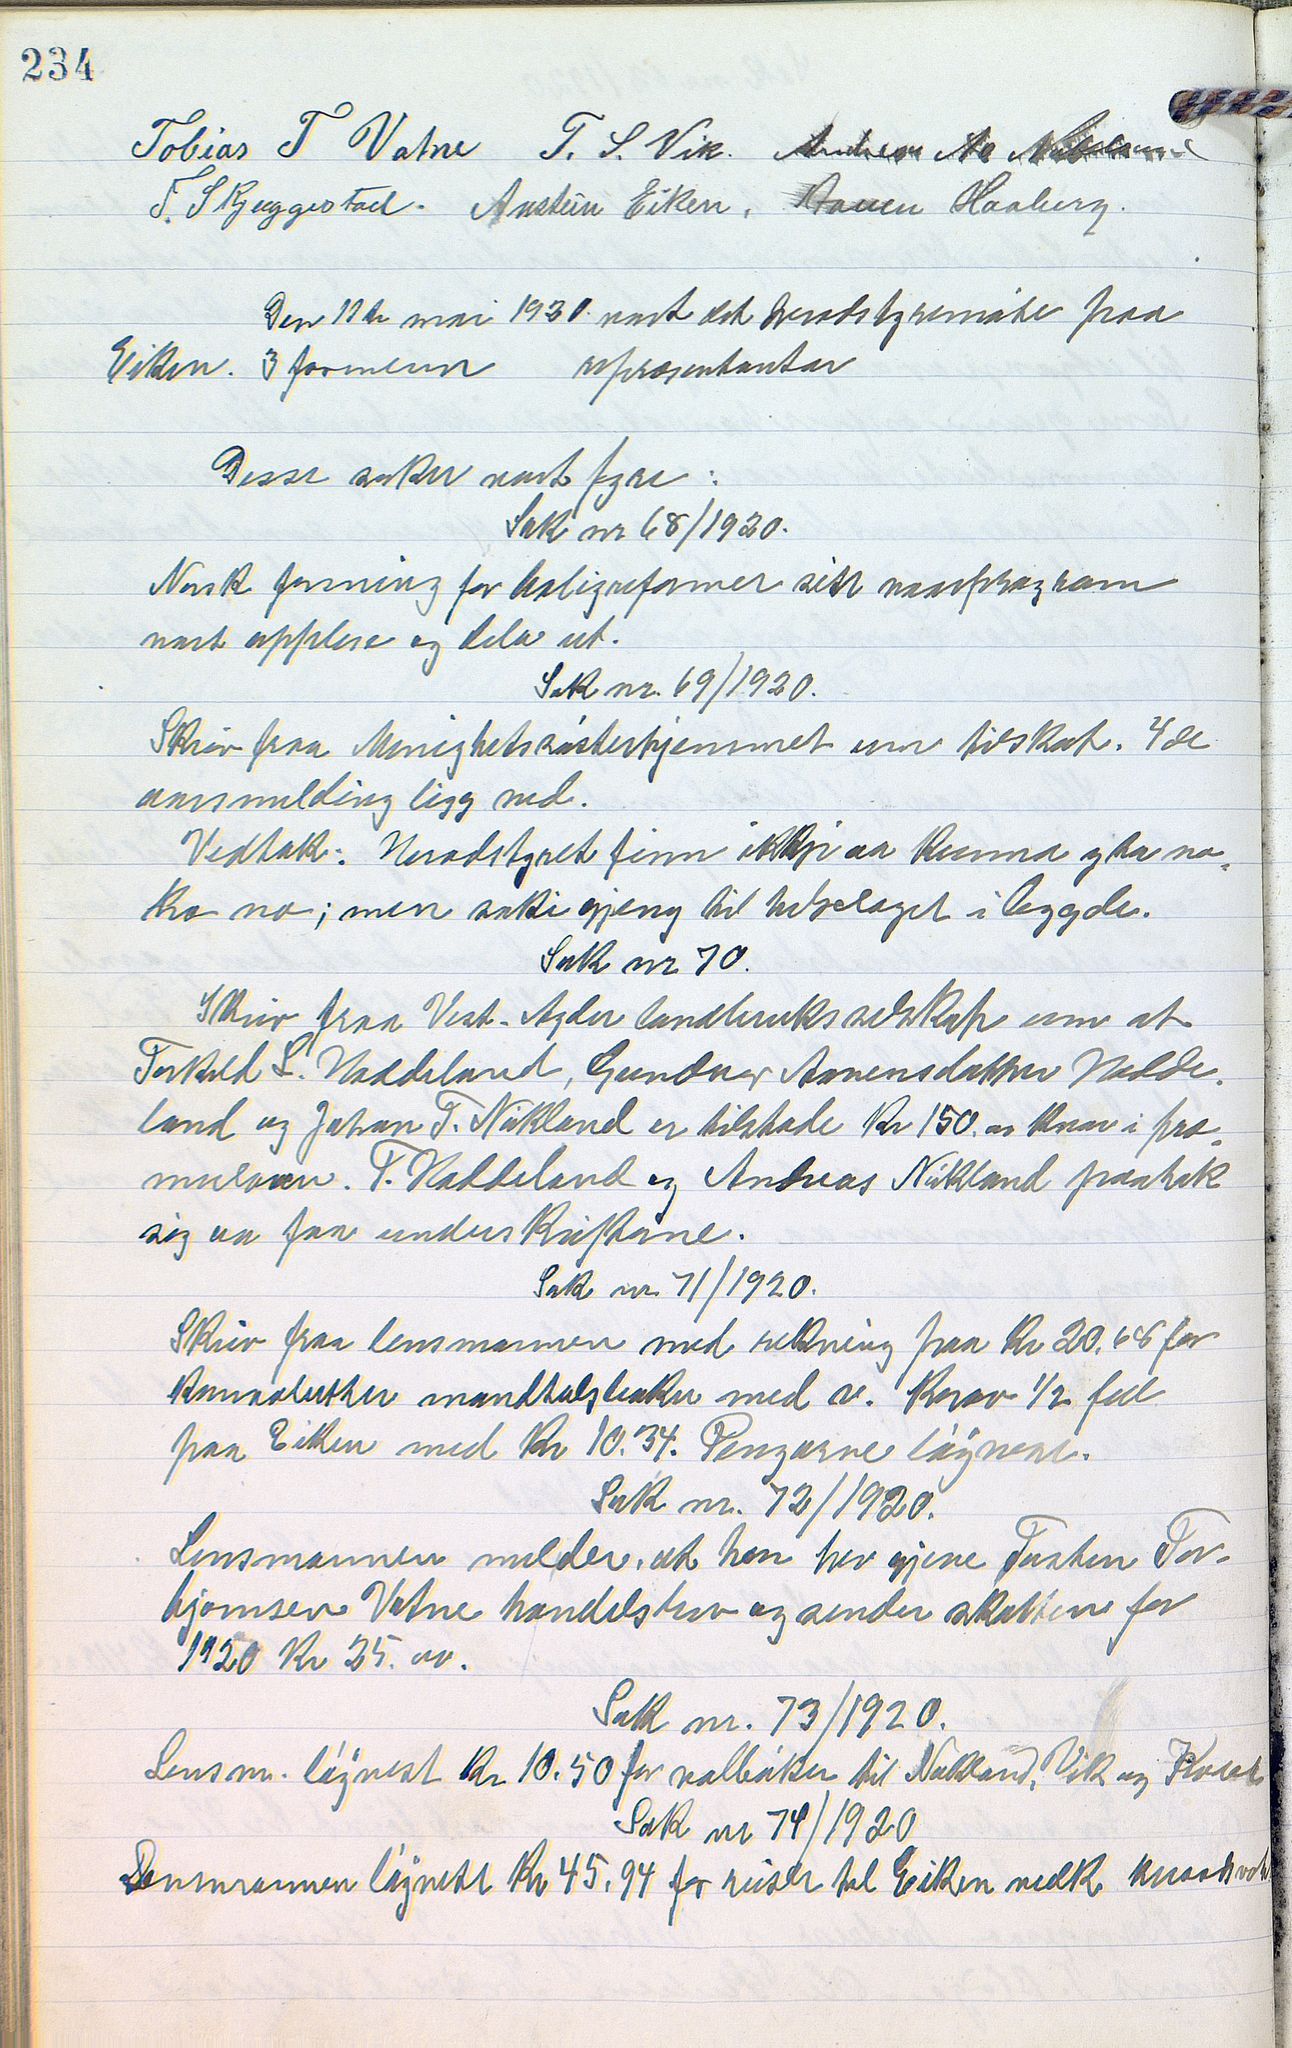 234
Tobias T Vatne T. S. Vik.
T. Skjeggestad. Anstein Eiken, Aanen Haaberg.
Den 11te mai 1920 vart det heradstyremøte paa
Eiken. 3 formenn representantar
Desse saker vart fyre:
Sak nr 68/1920.
Norsk forening for boligreformer sitt program
vart opplese og dela ut.
Sak nr. 69/1920.
Skriv fraa Menighetssøsterhjemmet um tilskot. 4de
aarsmelding ligg ved.
Vedtak: Heradstyret finn ikkje aa kunna yta no-
ko no; men saki gjeng til helselaget i bygde.
Sak nr 70.
Skriv fraa Vest-Agder landbruksselskap um at
Torkeld S. Haddeland, Gunduer Aanensdatter Hadde-
land og Johan T. Nækland er tilstade Kr 150. av kvar i pre-
mielaan. T. Haddeland og Andreas Nækland paatok
sig aa faa underskriftane.
Sak nr. 71/1920.
Skriv fraa lensmannen med rekning paa Kr 20.68 for
mandtalsbøker med v. Krav 1/2 fell
paa Eiken med Kr 10.34. Pengarne løyvest.
Sak nr. 72/1920.
Lensmannen melder, at han hev gjeve Tosten Tor-
bjørnsen Vatne handelsbrev og sender skatten for
1920 Kr 25. oo.
Sak nr. 73/1920.
Lensm. løyvest Kr 10.50 for valbøker til Nækland, Vik og
Sak nr 74/1920
Lensmannen løyvest Kr 45.94 for reiser til Eiken vedk.